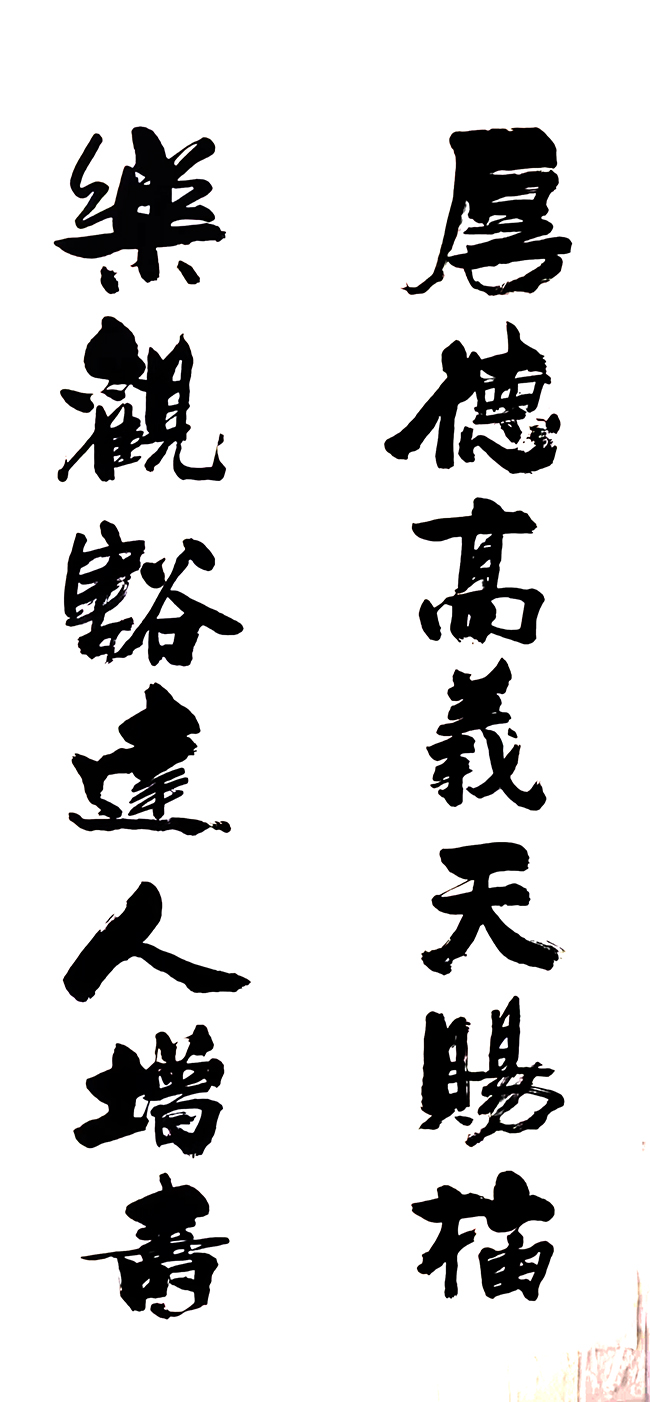 厚德高義天賜福
樂觀豁達人增壽